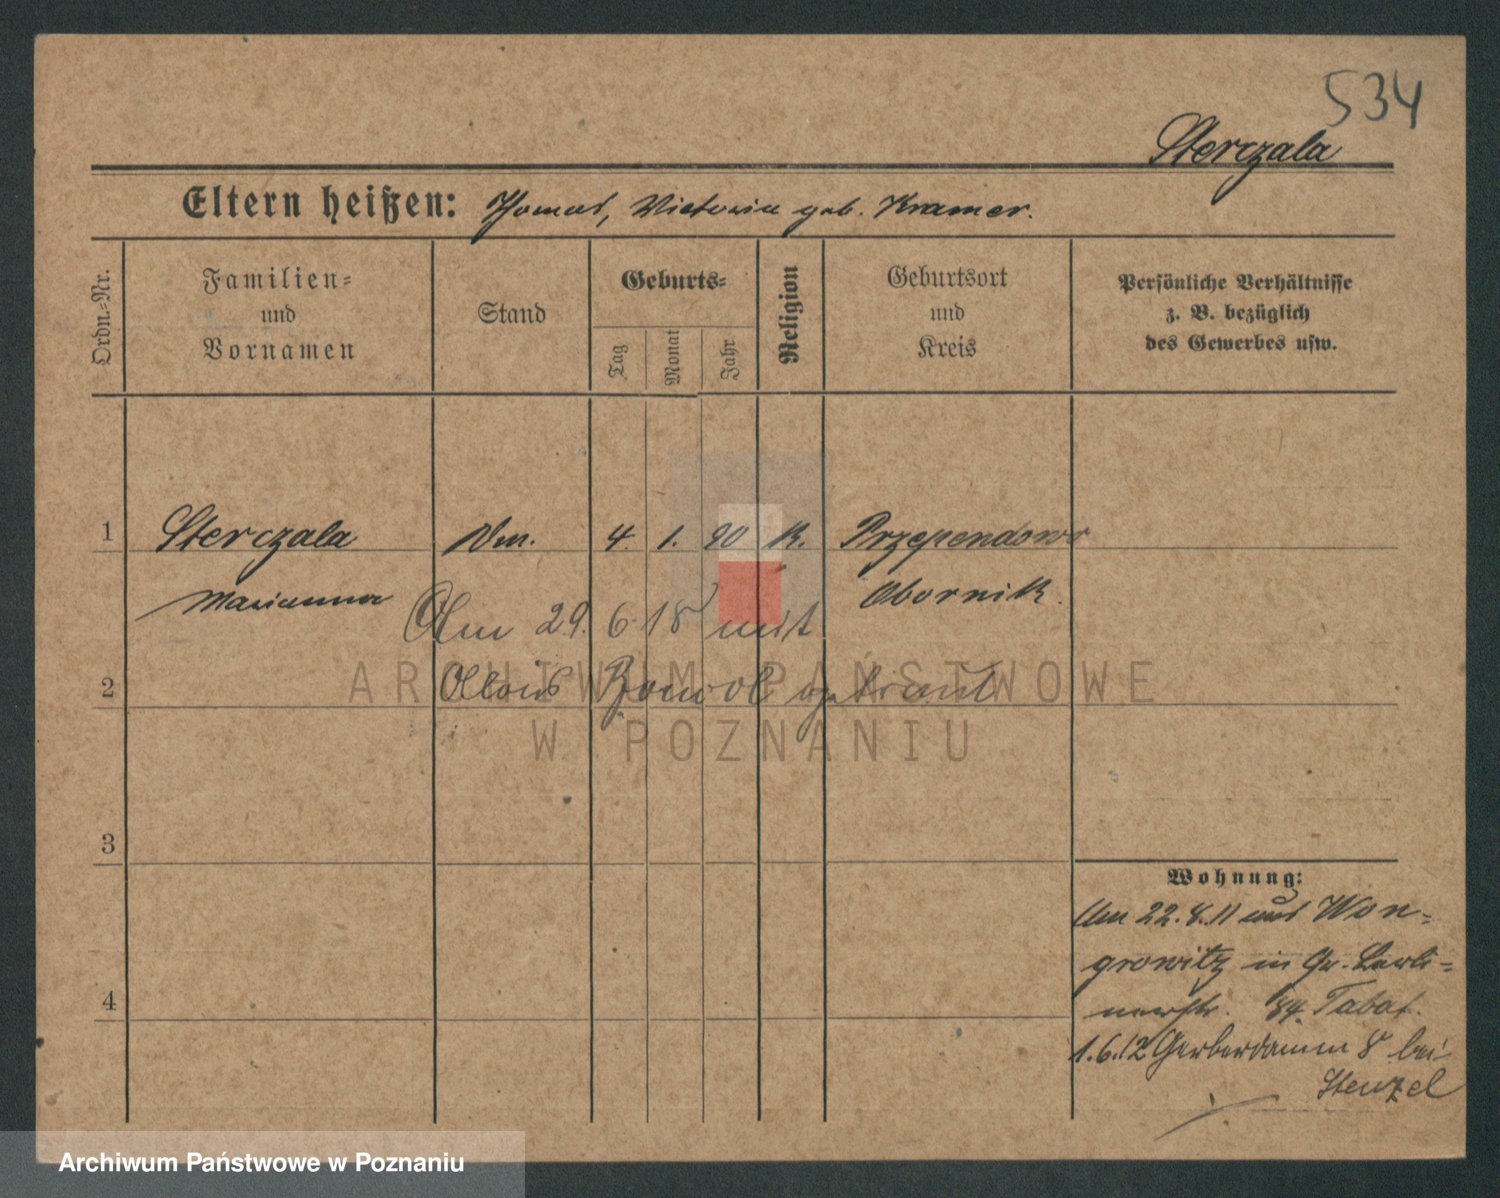 534
Sterczala
Eltern heißen: Thomas, Victoria geb. Kramer.
Ordn.-Nr.
Familien-
und
Vornamen
Stand
Geburts-
Tag
Monat
Jahr
Religion
Geburtsort
und
Kreis
Persönliche Verhältnisse
z. B. bezüglich
des Gewerbes usw.
1 Sterczala 4. 1. 90 K. Przependowo
Marianna Obornik.
Am 29. 6. 18 mit
2 Alois getraut
3
4
Wohnung:
Am 22.8.11 aus Won-
growitz in Gr. Berli-
nerstr. 84.
1.6.12 Gerberdamm 8 bei
Stenzel
ARCHIWUM PAŃSTWOWE
W POZNANIU
Archiwum Państwowe w Poznaniu